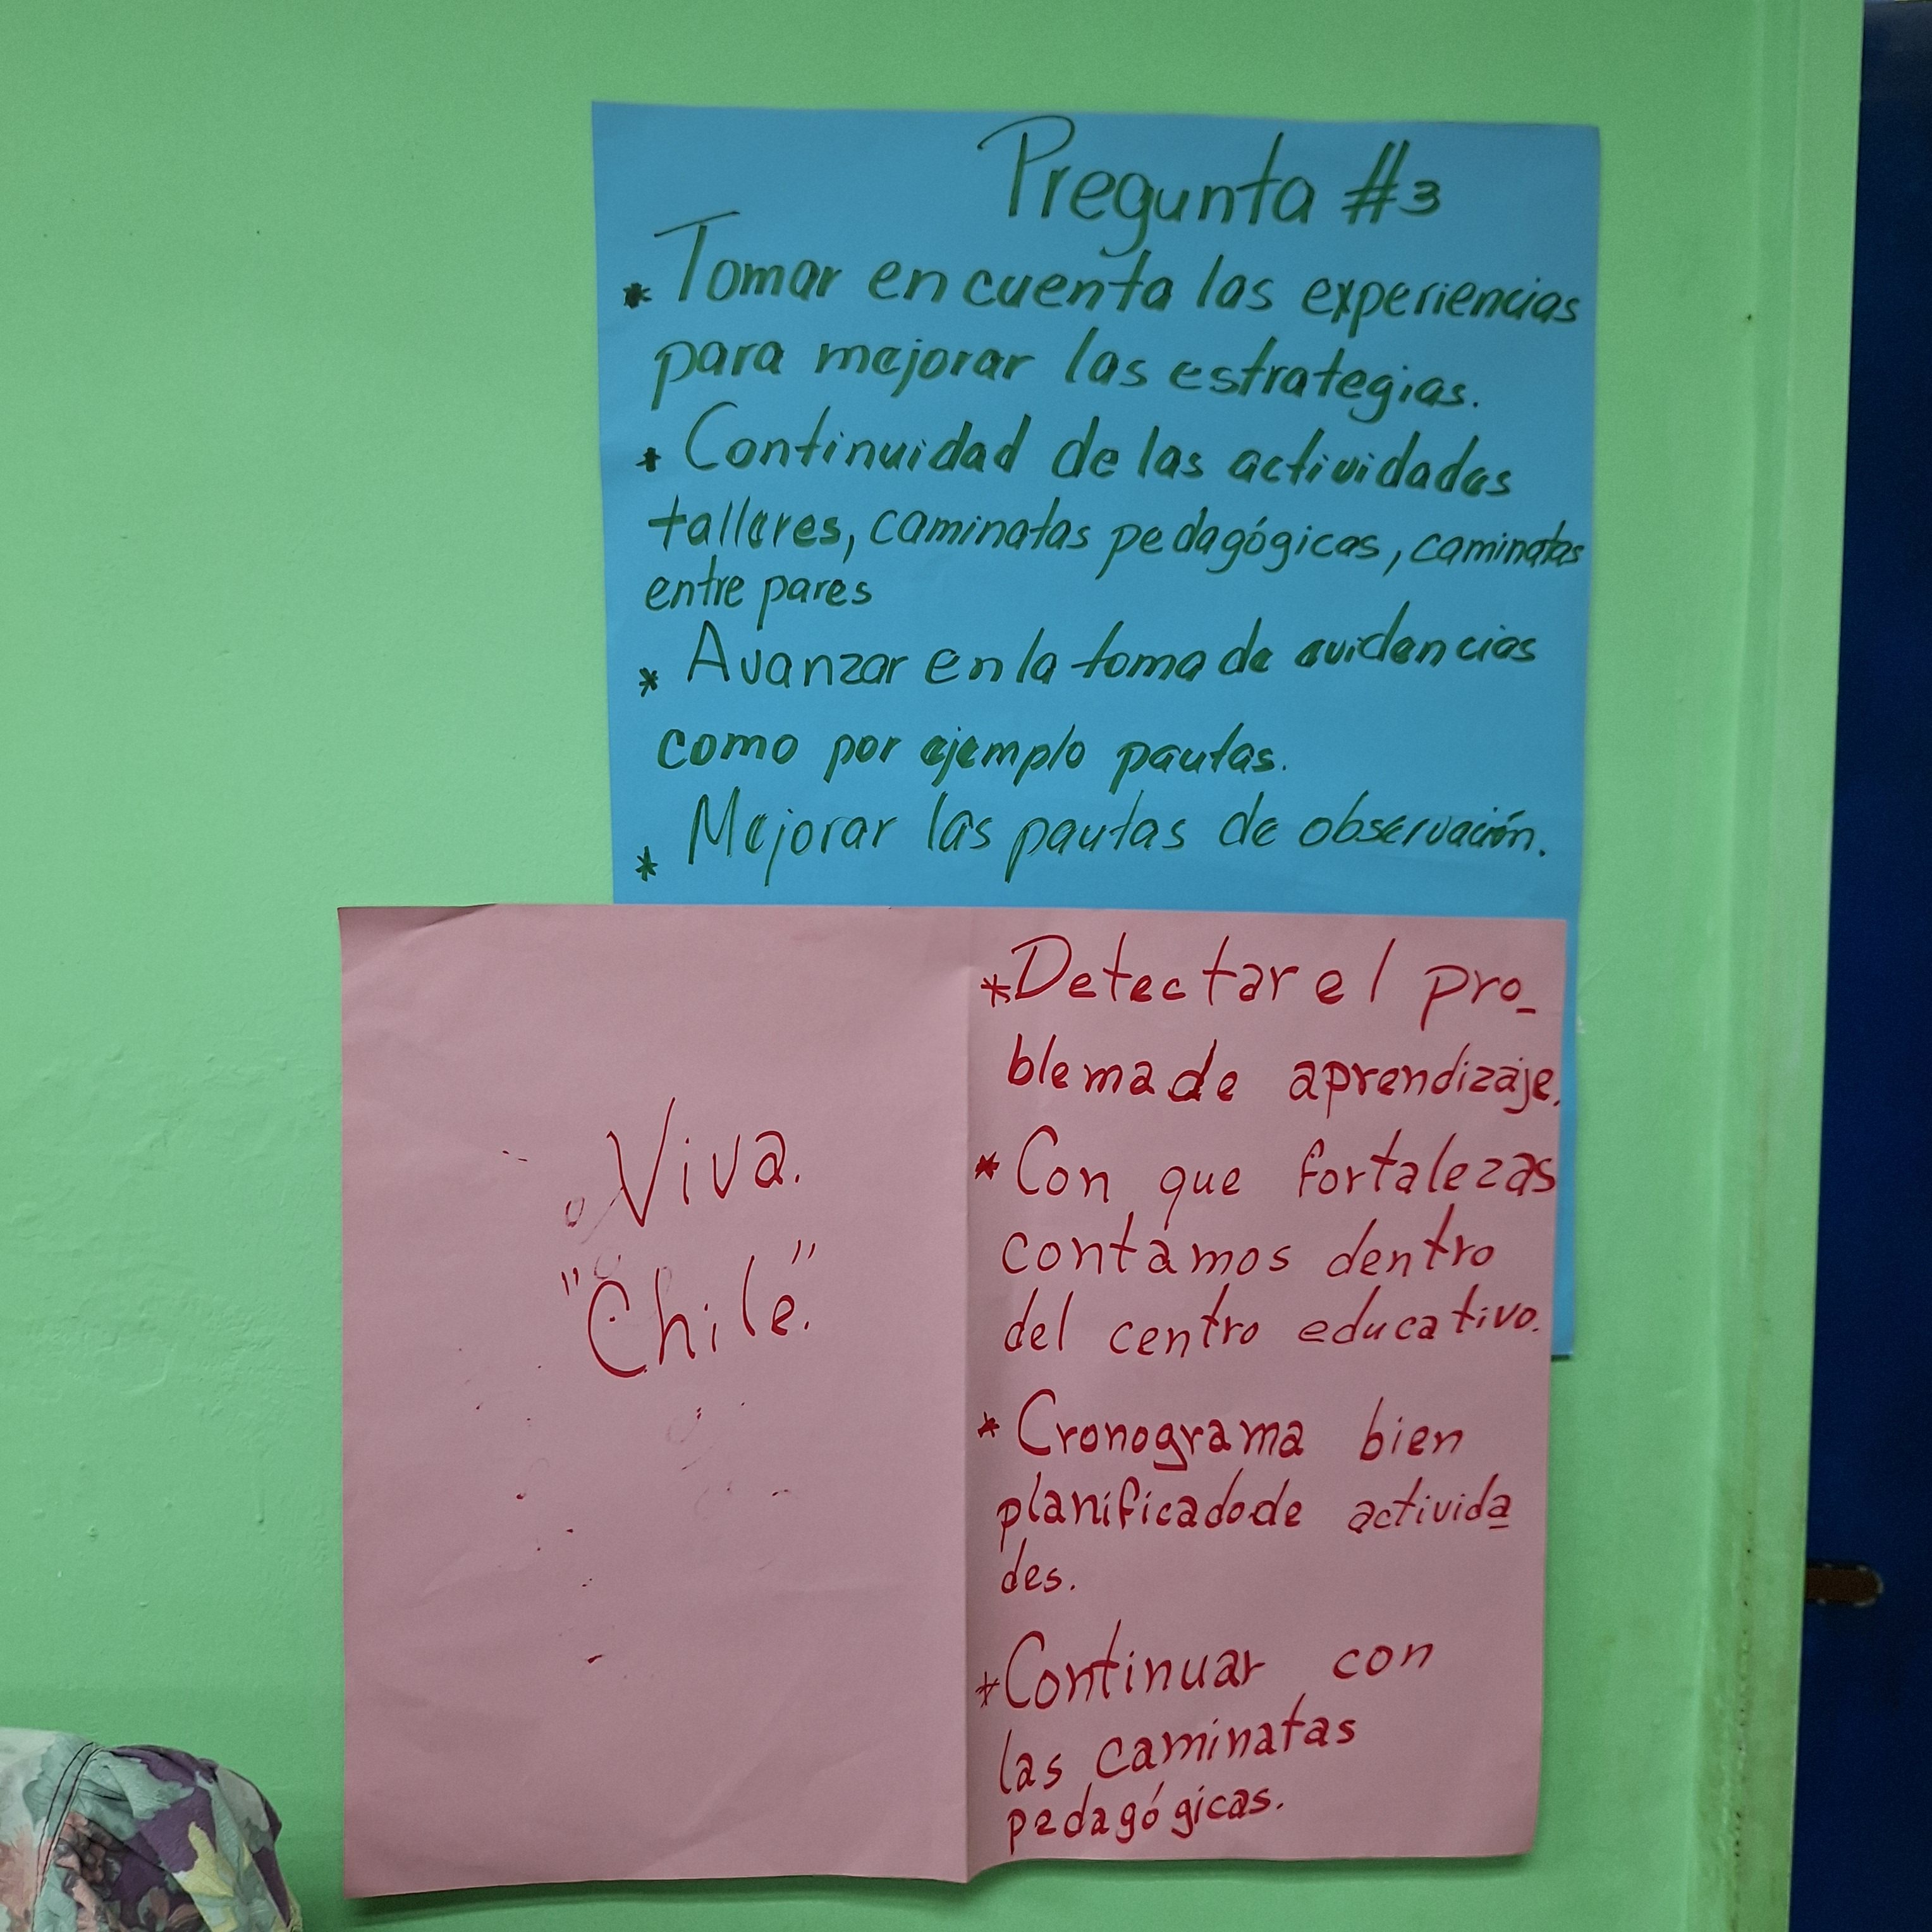 Pregunta #3
* Tomar en cuenta las experiencias
para mejorar las estrategias.
* Continuidad de las actividades
talleres, caminatas pedagógicas, caminatas
entre pares
* Avanzar en la toma de evidencias
como por ejemplo pautas.
* Mejorar las pautas de observación.
Viva.
"Chile."
*Detectar el pro_
blema de aprendizaje.
* Con que fortalezas
contamos dentro
del centro educativo.
* Cronograma bien
planificado de activida
des.
*Continuar con
las caminatas
pedagógicas.